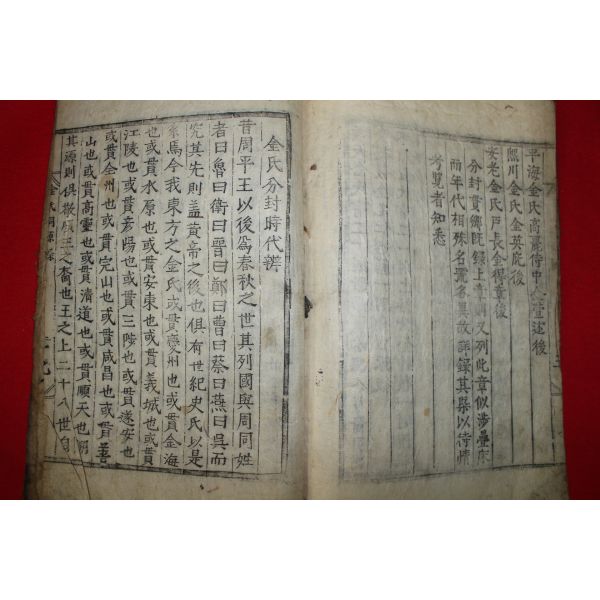 平海金氏高麗侍中 後
熙川金氏金英庇後
安老金氏戶長金得章後
分封貫鄉旣錄上章 又列此章似涉疊床
而年代相殊名 各異故詳錄其 以待博
考覽者知悉
金氏分封時代辨
昔周平王以後爲春秋之世其列國與周同姓
者曰魯曰衛曰晉曰鄭曰曹曰蔡曰燕曰吳而
究其先則盖黃帝之後也俱有世紀史氏以是
系焉今我東方之金氏或貫慶州也或貫金海
也或貫水原也或貫安東也或貫義城也或貫
江陵也或貫彦陽也或貫三陟也或貫遂安也
或貫全州也或貫完山也或貫咸昌也或貫善
山也或貫高靈也或貫淸道也或貫順天也
其源則俱敬順王之裔也王之上二十八世自
金氏 源錄